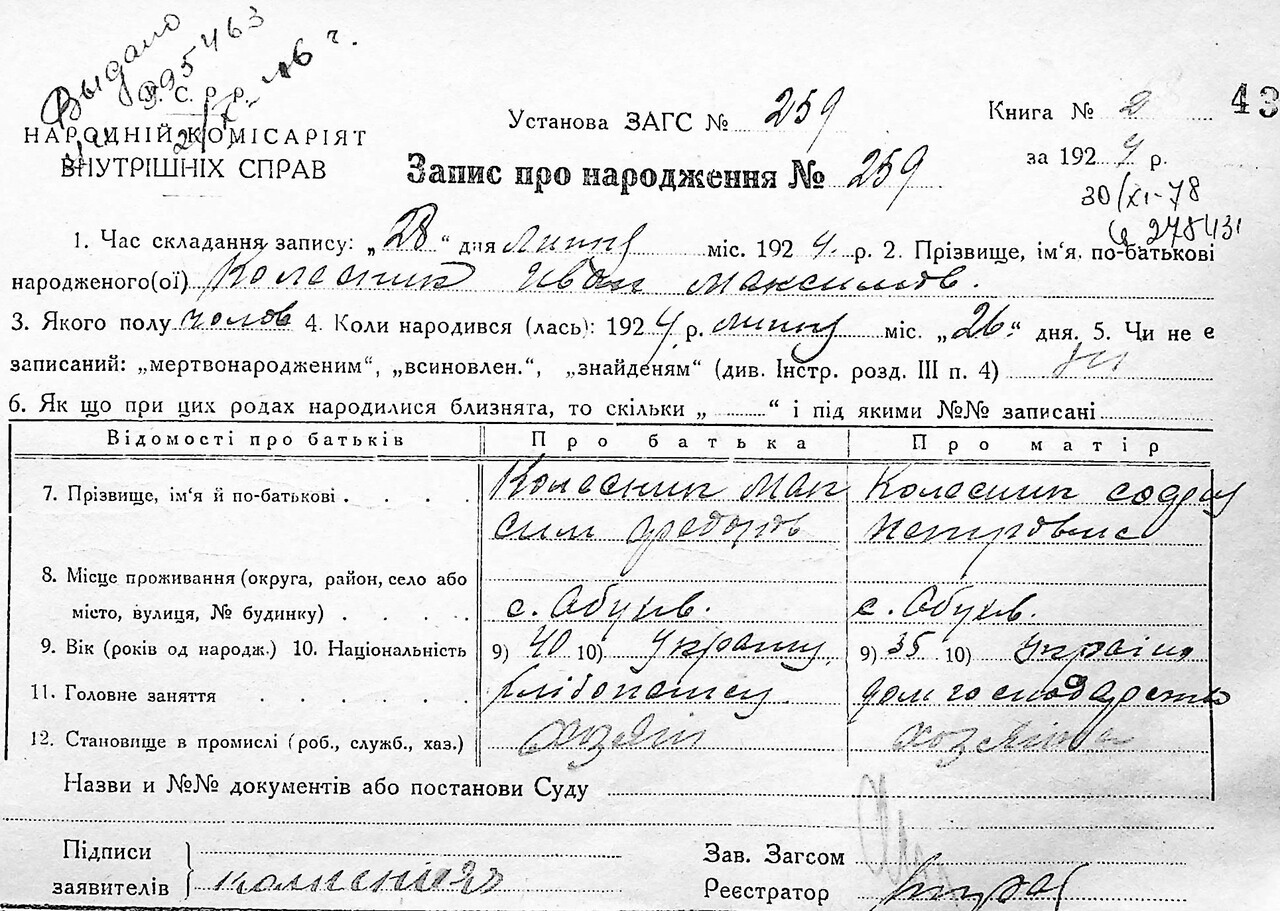 Выдано
995463
У. С. Р. Р.
НАРОДНІЙ КОМІСАРІЯТ
ВНУТРІШНІХ СПРАВ
Установа ЗАГС № 259
Запис про народження № 259
Книга № 2
43
за 1924 р.
30/XI-78
278431
1. Час складання запису: „28“ дня липня міс. 1924 р. 2. Прізвище, ім‘я, по-батькові
народженого(ої) Колесник Иван Максимов.
3. Якого полу чолов 4. Коли народився (лась): 1924 р. липня міс. „26“ дня. 5. Чи не є
записаний: „мертвонародженим“, „всиновлен.“, „знайденям“ (див. Інстр. розд. III п. 4) ні
6. Як що при цих родах народилися близнята, то скільки „ “ і під якими №№ записані
Відомості про батьків Про батька Про матір
7. Прізвище, ім‘я й по-батькові . . . . Колесник Мак Колесник
сим Федоров Петровна
8. Місце проживання (округа, район, село або
місто, вулиця, № будинку) . . . . с. Обухів. с. Обухів.
9. Вік (років од народж.) 10. Національність 9) 40 10) Украінц 9) 35 10) Україн
11. Головне заняття . . . . . хлібопашец дом господарство
12. Становище в промислі (роб., служб., хаз.) хозяін хозяінка
Назви и №№ документів або постанови Суду
Підписи
заявителів
Зав. Загсом
Реєстратор